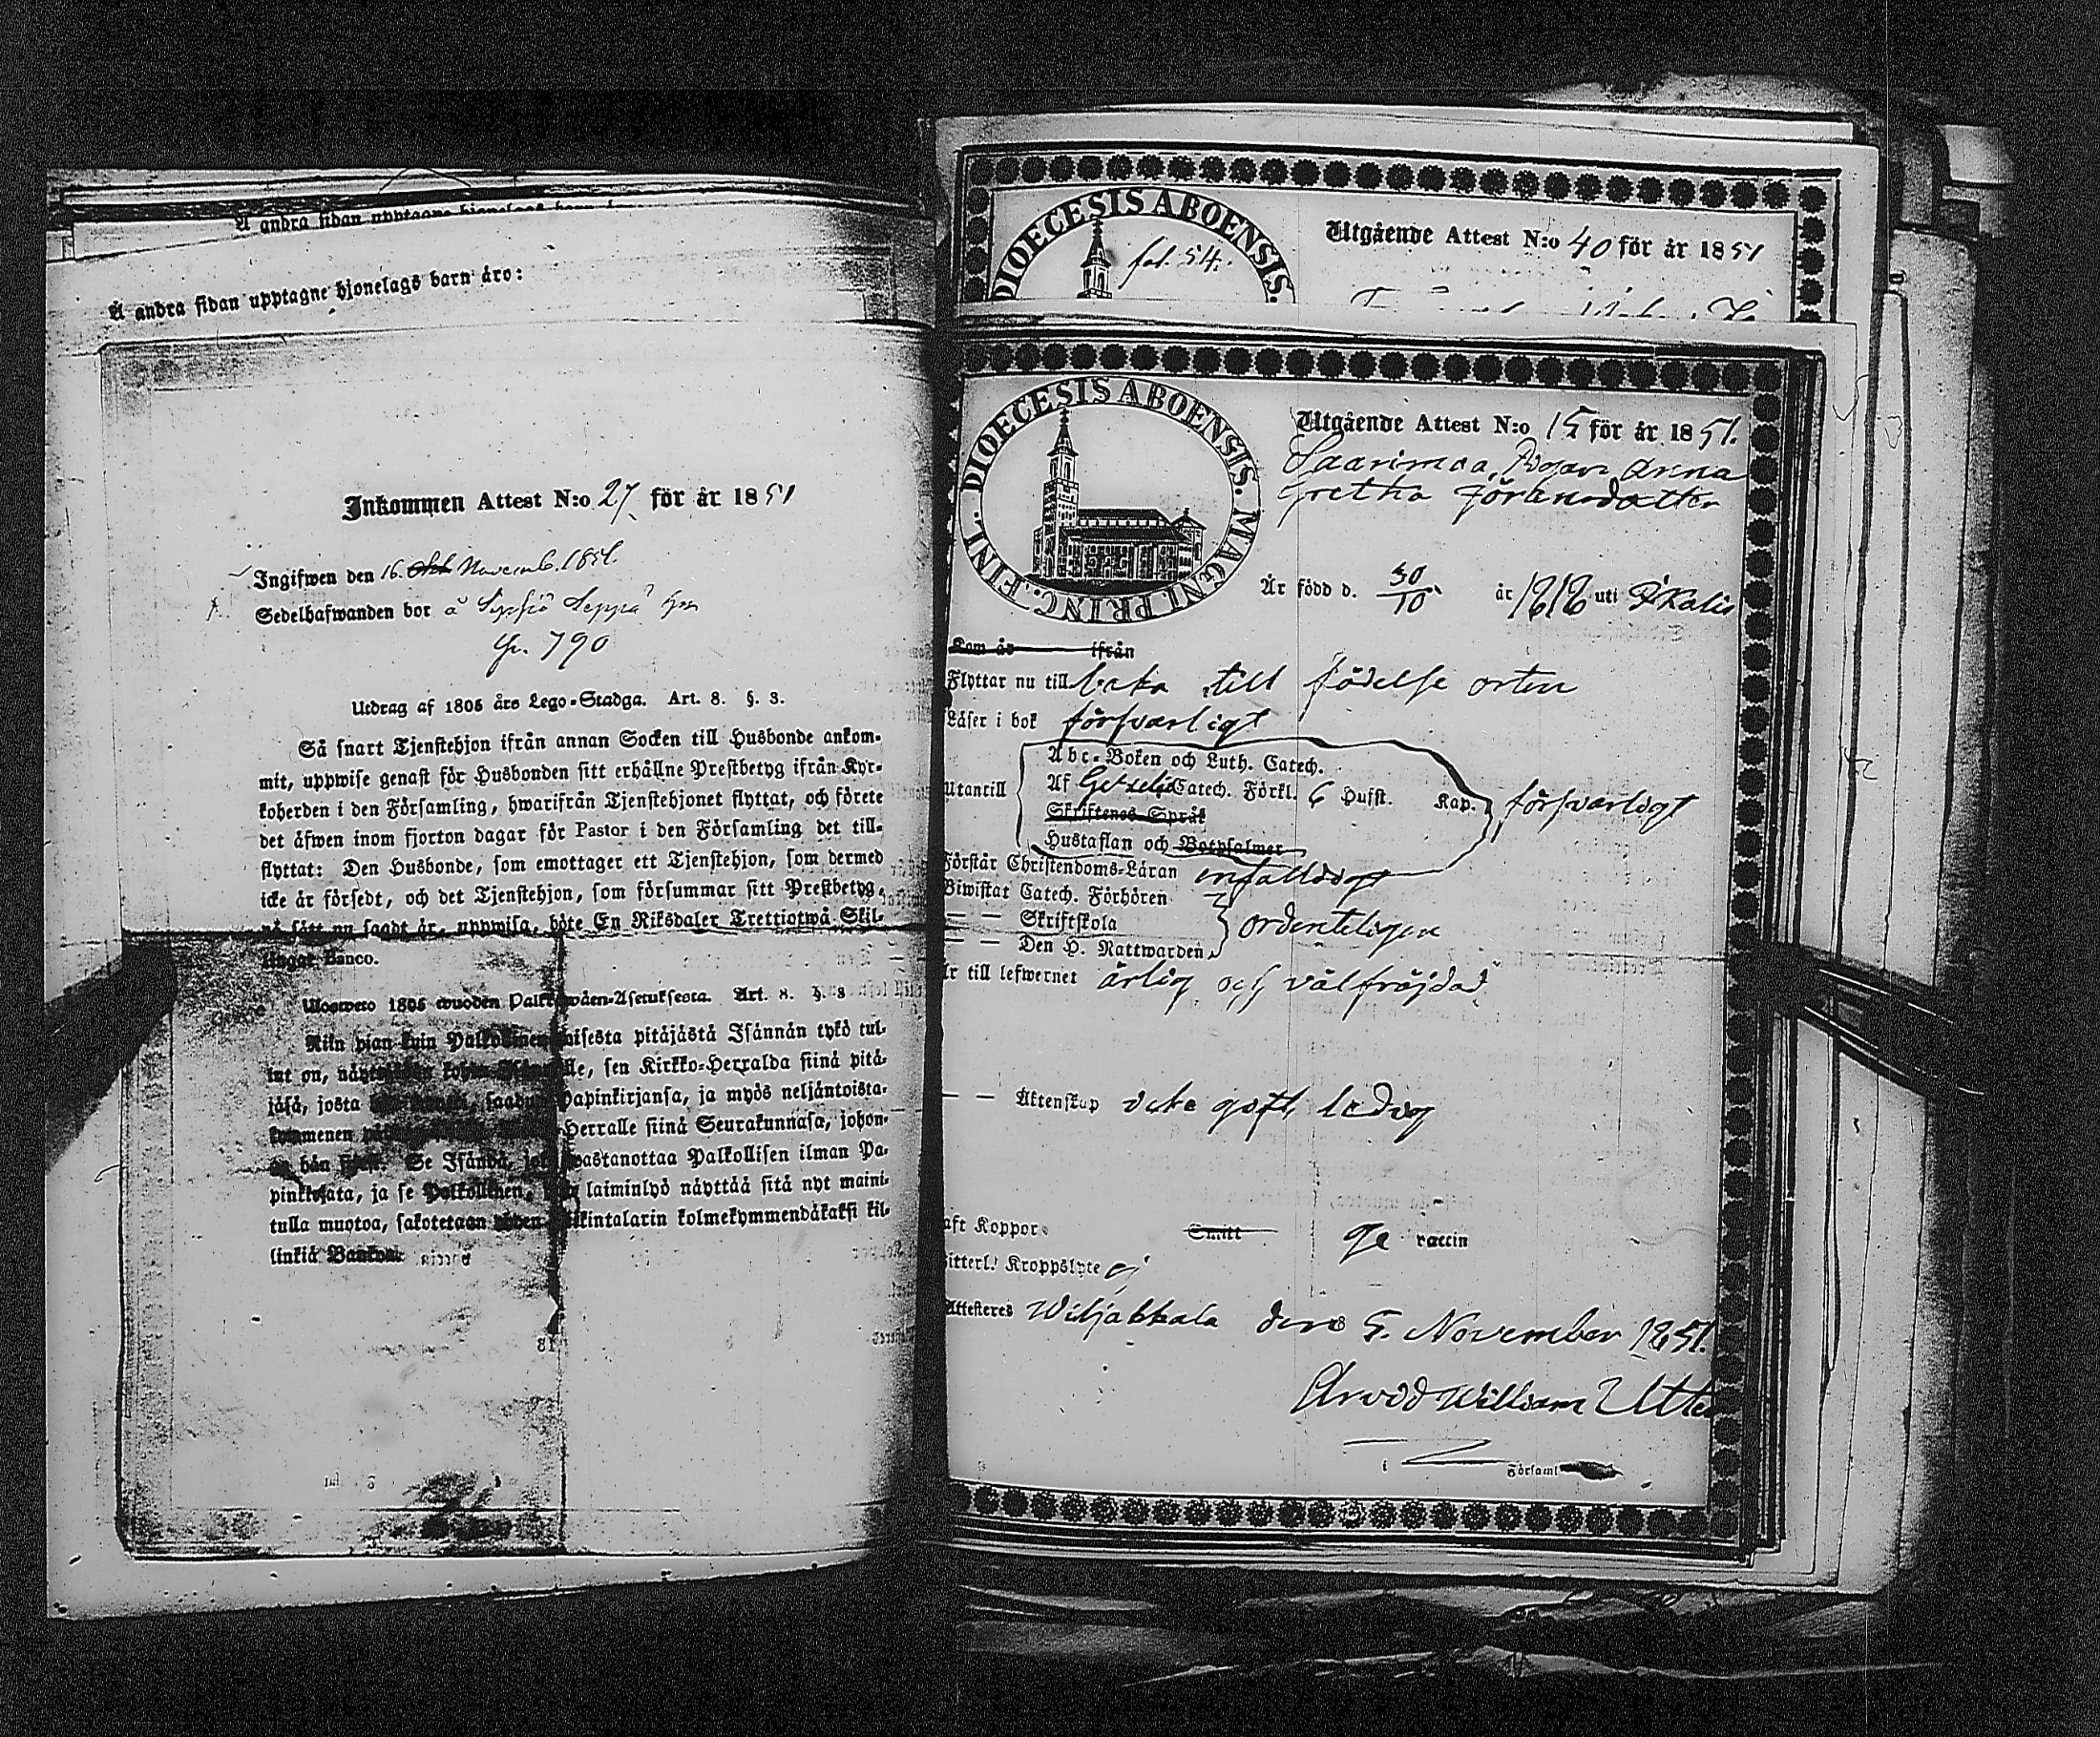 Å andra sidan upptagne hjonelags barn äro:
Å andra sidan upptagne hjonelags barn äro:
Inkommen Attest N:o 27 för år 1851
Ingifwen den 16. Novemb. 1851.
Sedelhafwanden bor å Seppä
790
Utdrag af 1805 års Lego-Stadga. Art. 8. §. 3.
Så snart Tjenstehjon ifrån annan Socken till Husbonde ankom-
mit, uppwise genast för Husbonden sitt erhållne Prestbetyg ifrån Kyr-
koherden i den Församling, hwarifrån Tjenstehjonet flyttat, och förete
det äfwen inom fjorton dagar för Pastor i den Församling det till-
flyttat: Den Husbonde, som emottager ett Tjenstehjon, som dermed
icke är försedt, och det Tjenstehjon, som försummar sitt Prestbetyg,
på sätt nu sagdt är, uppwisa, böte En Riksdaler Trettiotwå Skil-
lingar Banco.
Ulosweto 1805 wuoden Palkkawäen-Asetuksesta. Art. 8. §. 3
Niin pian kuin Palkollinen toisesta pitäjästä Isännän tykö tul-
lut on, sen Kirkko-Herralda siinä pitä-
jäsä, josta saadun Papinkirjansa, ja myös neljäntoista-
kymmenen Herralle siinä Seurakunnasa, johon-
on hän Se Isändä, joka wastanottaa Palkollisen ilman Pa-
pinkirjata, ja se Palkollinen, laiminlyö näyttää sitä nyt maini-
tulla muotoa, sakotetaan yhden Riikintalarin kolmekymmendäkaksi kil-
linkiä Bankoa
DIOECESIS ABOENSIS.
fol. 54.
Utgående Attest N:o 40 för år 1851
DIOECESIS ABOENSIS. MAGNI PRINC. FINL.
Utgående Attest N:o 15 för år 1851.
Saarimaa, Pigan Anna
Gretha Göransdotter
Är född d. 30/10 år 1818 uti Ikalis
Kom år ifrån
Flyttar nu till baka till födelse orten
Läser i bok försvarligt
Abc-Boken och Luth. Catech.
Utantill Af Getzelii Catech. Förkl. 6 Hufst. Kap. försvarligt
Skriftenes Språk
Hustaflan och Botpsalmer
Förstår Christendoms-Läran enfaldigt
Biwistat Catech. Förhören
— — Skriftskola ordenteligen
— — Den H. Nattwarden
Är till lefwernet ärlig och välfräjdad
— — Äktenskap icke gift, ledig
aft Koppor Smitt ge vaccin
itterl. Kroppslyte ej
Attesteres Wiljakkala den 5. November 1851.
Arvid William Utter
i Församl